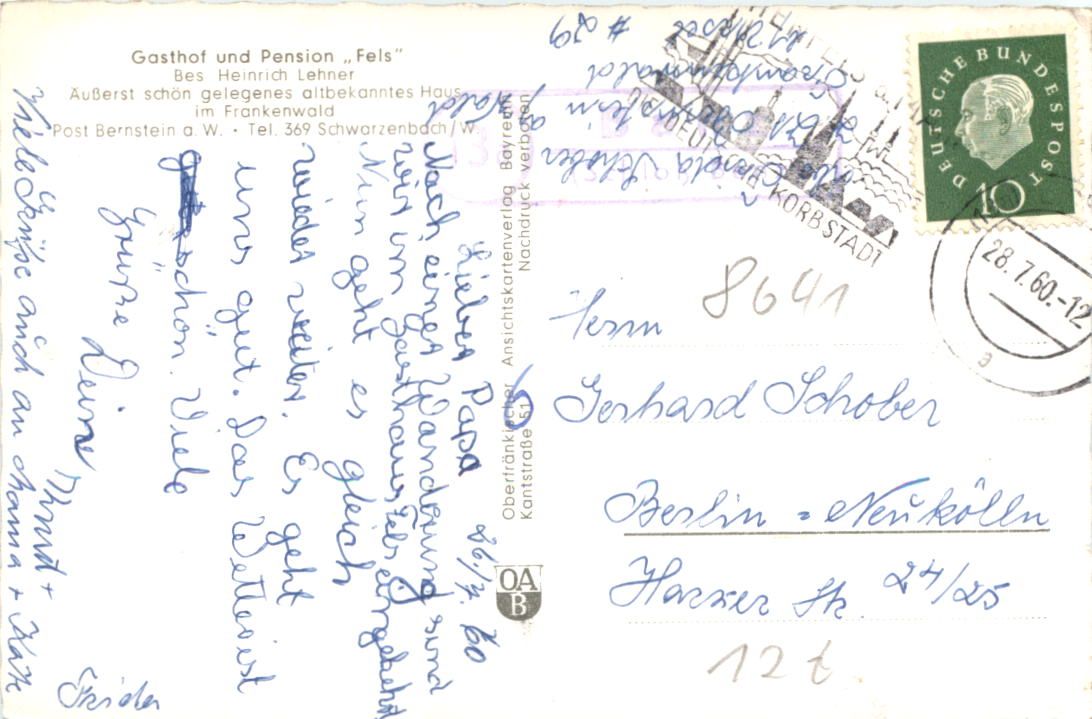 Gasthof und Pension „Fels“
Bes Heinrich Lehner
Äußerst schön gelegenes altbekanntes Haus
im Frankenwald
Post Bernstein a. W. · Tel. 369 Schwarzenbach/W.
Lieber Papa 26./7. 60
Nach einer Wanderung sind
wir im Gasthaus Fels eingekehrt
Nun geht es gleich
wieder weiter. Es geht
uns gut. Das Wetter ist
schön. Viele
Grüße Deine
Viele Grüße auch an Mama + Käthe
Frieda
Obertränkischer Ansichtskartenverlag Bayreuth
Kantstraße 51 Nachdruck verboten
OA
B
Schober
Bernstein a. Wald
Frankenwald
# 29
DIE DEUTSCHE KORBSTADT
DEUTSCHE BUNDESPOST
10
28.7.60.-12
a
8641
Herrn
Gerhard Schober
Berlin-Neukölln
Harzer Str. 24/25
12t